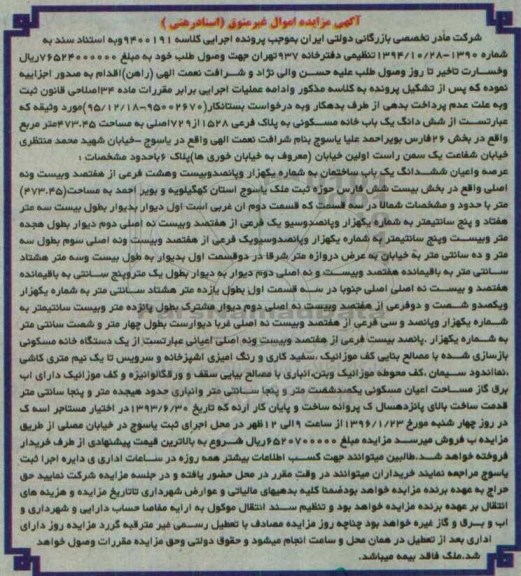 آگهی مزایده اموال غیرمنقول (اسنادرهنی)
شرکت مادر تخصصی بازرگانی دولتی ایران بموجب پرونده اجرایی کلاسه ۹۴۰۰۱۹۱وبه استناد سند به
شماره ۱۳۹۰-۱۳۹۴/۱۰/۲۸تنظیمی دفترخانه ۹۳۷تهران جهت وصول طلب خود به مبلغ ۷۶۵۲۴۰۰۰۰۰۰ریال
وخسارت تاخیر تا روز وصول طلب علیه حسن والی نژاد و شرافت نعمت الهی (راهن)اقدام به صدور اجراییه
نموده که پس از تشکیل پرونده به کلاسه مذکور وادامه عملیات اجرایی برابر مقررات ماده ۳۴اصلاحی قانون ثبت
وبه علت عدم پرداخت بدهی از طرف بدهکار وبه درخواست بستانکار(۹۵۰۰۲۶۷۰-۹۵/۱۲/۱۸)مورد وثیقه که
عبارتست از شش دانگ یک باب خانه مسکونی به پلاک فرعی ۱۵۲۸از۷۲۹اصلی به مساحت ۴۷۳.۴۵متر مربع
واقع در بخش ۲۶فارس بویراحمد علیا یاسوج بنام شرافت نعمت الهی واقع در یاسوج -خیابان شهید محمد منتظری
خیابان شفاعت یک سمن راست اولین خیابان (معروف به خیابان خوری ها)پلاک ۶باحدود مشخصات :
عرصه واعیان ششدانگ یک باب ساختمان به شماره یکهزار وپانصدوبیست وهشت فرعی از هفتصد وبیست ونه
اصلی واقع در بخش بیست شش فارس حوزه ثبت ملک یاسوج استان کهگیلویه و بویر احمد به مساحت(۴۷۳.۴۵)
متر با حدود و مشخصات شمالا در سه قسمت که قسمت دوم آن غربی است اول دیوار بدیوار بطول بیست سه متر
هفتاد و پنج سانتیمتر به شماره یکهزار وپانصدوسیو یک فرعی از هفتصد وبیست نه اصلی دوم دیوار بطول هجده
متر وبیست وپنج سانتیمتر به شماره یکهزار وپانصدوسیویک فرعی از هفتصد وبیست ونه اصلی سوم بطول سه
متر و ده سانتی متر به خیابان به عرض دروازه متر شرقا در دوقسمت اول بدیوار به طول بیست وسه متر هشتاد
سانتی متر به باقیمانده هفتصد وبیست و نه اصلی دوم دیوار به دیوار بطول یک متروپنج سانتی به باقیمانده
هفتصد و بیست نه اصلی اصلی جنوبا در سه قسمت اول بطول یازده متر هشتاد سانتی متر به شماره یکهزار
ویکصدو شصت و دوفرعی از هفتصد وبیست نه اصلی دوم دیوار مشترک بطول پانزده متر وبیست سانتیمتر به
شماره یکهزار وپانصد و سی فرعی از هفتصد وبیست نه اصلی غربا دیوارست بطول چهار متر و شصت سانتی متر
به شماره یکهزار .پانصد بیست فرعی از هفتصد وبیست ونه اصلی اعیانی عبارتست از یک دستگاه خانه مسکونی
بازسازی شده با مصالح بنایی کف موزائیک ،سفید کاری و رنگ امیزی اشپزخانه و سرویس تا یک نیم متری کاشی
،نمااندود سیمان ،کف محوطه موزائیک وبتن،انباری با مصالح بنایی سقف و ورقگالوانیزه و کف موزائیک دارای اب
برق گاز مساحت اعیان مسکونی یکصدشصت متر و پنجا سانتی متر وانباری حدود هیجده متر و پنجا سانتی متر
قدمت ساخت بالای پانزدهسال ک پروانه ساخت و پایان کار ارنه که تاریخ ۱۳۹۳/۶/۳۰ در اختیار مستاجر اسه ک
در روز چهار شنبه مورخ ۱۳۹۶/۱/۲۳از ساعت ۹الی ۱۲ظهر در محل اجرای ثبت یاسوج در خیابان مصلی از طریق
مزایده ب فروش میرسد مزایده مبلغ ۶۵۲۰۷۰۰۰۰۰ریال شروع به بالاترین قیمت پیشنهادی از طرف خریدار
فروخته خواهد شد.طالبین میتوانند جهت کسب اطلاعات بیشتر همه روزه در ساعات اداری ی دایره اجرا ثبت
یاسوج مراجعه نمایند خریداران میتوانند در وقت مقرر در محل حضور یافته و در جلسه مزایده شرکت نمایید حق
حراج به عهده برنده مزایده خواهد بودضمنا کلیه بدهیهای مالیاتی و عوارض شهرداری تاتاریخ مزایده و هزینه های
انتقال بر عهده برنده مزایده خواهد بود و تنظیم سند انتقال موکول به ارایه مفاصا حساب دارایی و شهرداری و
اب و برق و گاز غیره خواهد بود چناچه روز مزایده مصادف با تعطیل رسمی غیر مترقبه گردد مزایده روز دارای
اداری بعد از تعطیل در همان محل و ساعت انجام میشود و حقوق دولتی وحق مزایده مقررات وصول خواهد
شد.ملک فاقد بیمه میباشد.